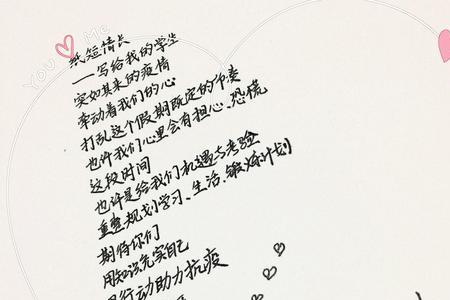 YOU
Me
纸短情长
——写给我的学生
突如其来的疫情
牵动着我们的心
打乱这个假期既定的节奏
也许我们心里会有担心、恐慌
这段时间
也许是给我们机遇与考验
重整规划学习、生活、锻炼计划
期待你们
用知识充实自己
行动助力抗疫